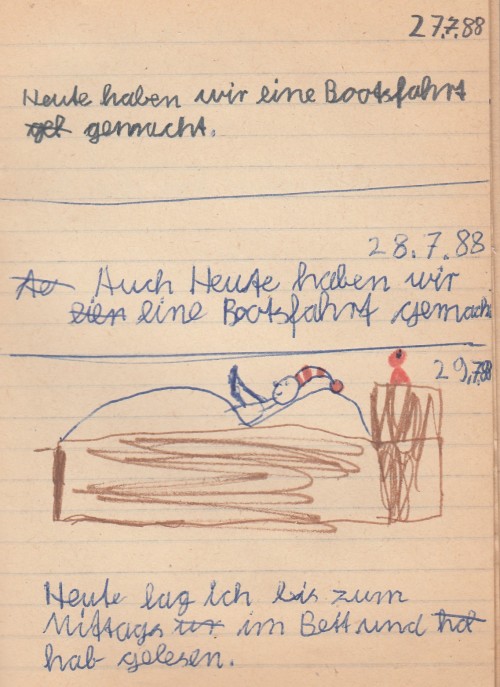 27.7.88
Heute haben wir eine Bootsfahrt
gemacht.
28.7.88
Auch Heute haben wir
eine Bootsfahrt gemach
29.7.88
Heute lag ich bis zum
Mittags im Bett und hat
hab gelesen.